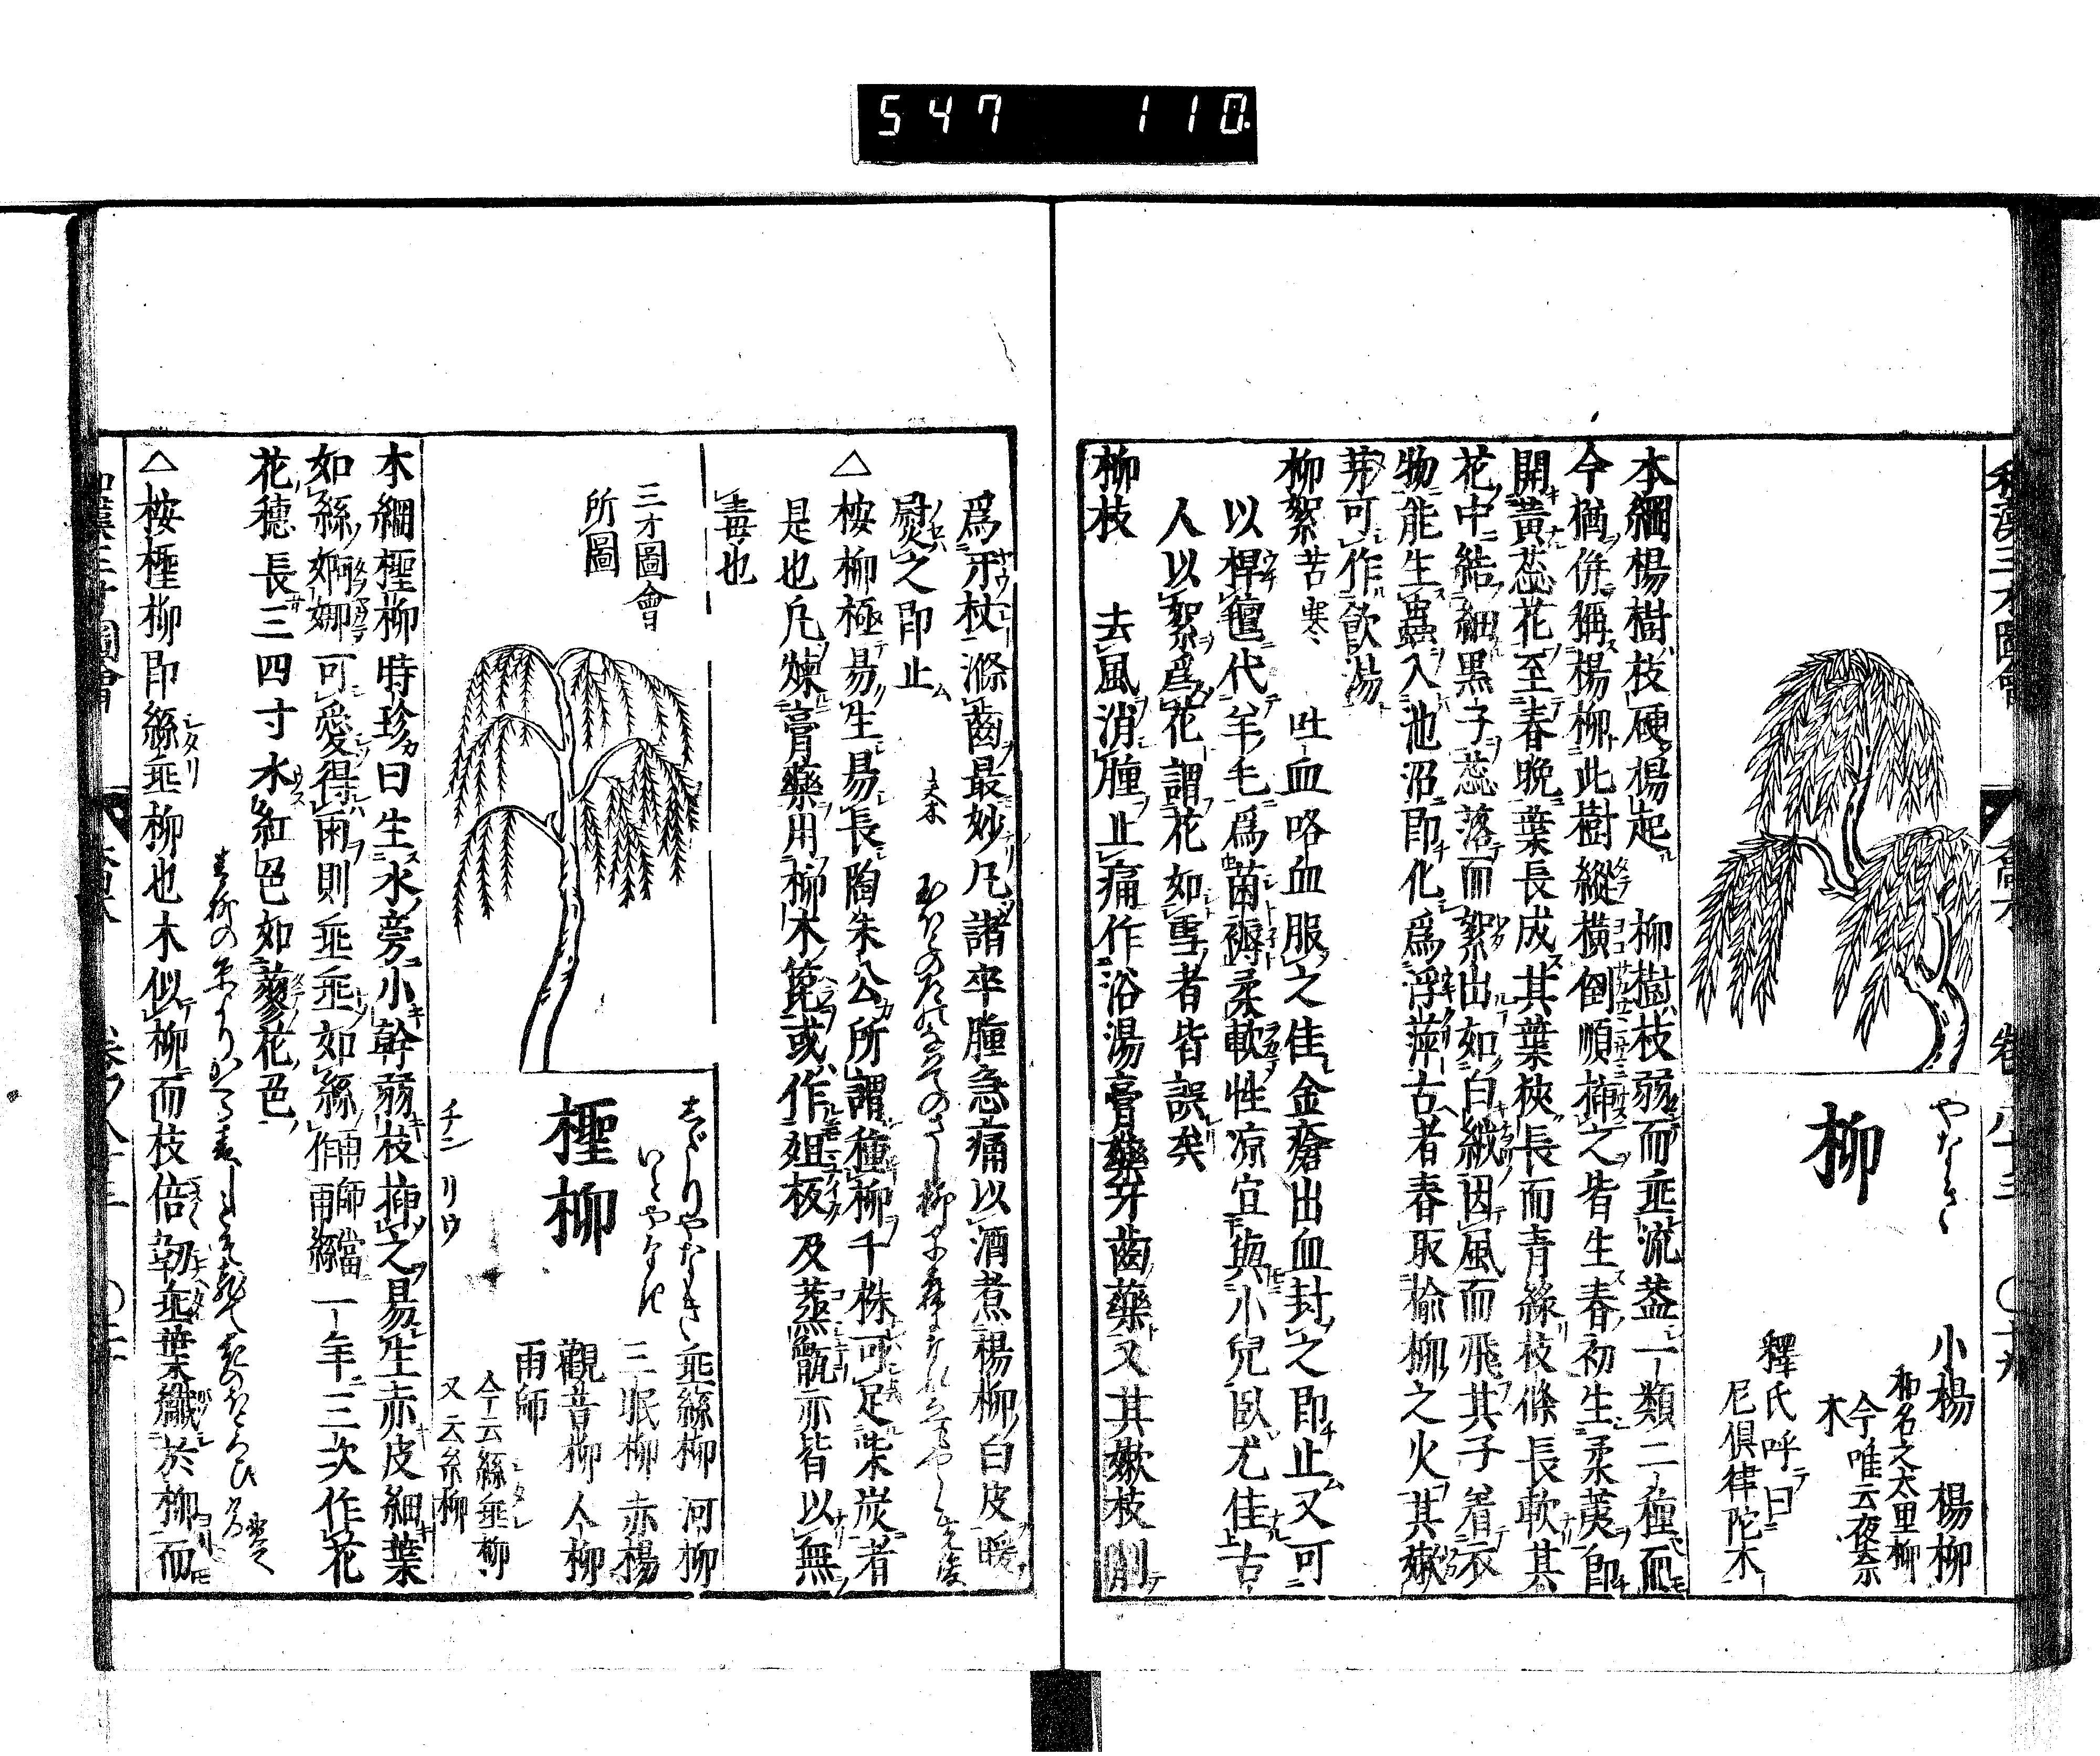 547 110.
和漢三才圖會
喬木
卷八十三
柳
やなぎ
小楊 楊柳
和名之太里柳
今唯云夜奈
木
釋氏呼曰
尼俱律陀木
本綱楊樹枝硬楊起 柳樹枝弱而垂流葢一類二種而
今猶併稱楊柳此樹縱橫倒順揷之皆生春初生柔荑即
開黃蕊花至春晚葉長成其葉狹長而青綠枝條長軟其
花中結細黑子蕊落而絮出如白絨因風而飛其子着衣
物能生蟲入池沼即化爲浮萍古者春取榆柳之火其嫩
芽可作飲湯
柳絮 苦寒 吐血咯血服之佳金瘡出血封之即止又可
以捍氊代羊毛爲茵褥柔軟性凉宜與小兒臥尤佳古
人以絮爲花謂花如雪者皆誤矣
柳枝 去風消腫止痛作浴湯膏藥牙齒藥又其嫩枝削
爲牙杖滌齒最妙凡諸卒腫急痛以酒煮楊柳白皮暖
熨之即止
夫木
△按柳極易生易長陶朱公所謂種柳千株可足柴炭者
是也凡煉膏藥用柳木箆或作爼板及蒸甑亦皆以無
毒也
三才圖會
所圖
檉柳
チン リウ
しだりやなぎ
いとやなぎ
垂絲柳 河柳
三眠柳 赤楊
觀音柳 人柳
雨師
今云絲垂柳
又云糸柳
木綱檉柳時珍曰生水旁小幹弱枝揷之易生赤皮細葉
如絲婀娜可愛得雨則垂垂如絲 雨師當作雨絲 一年三次作花
花穗長三四寸水紅色如蓼花色
△按檉柳即絲垂柳也木似柳而枝倍韌垂葉纎於柳而